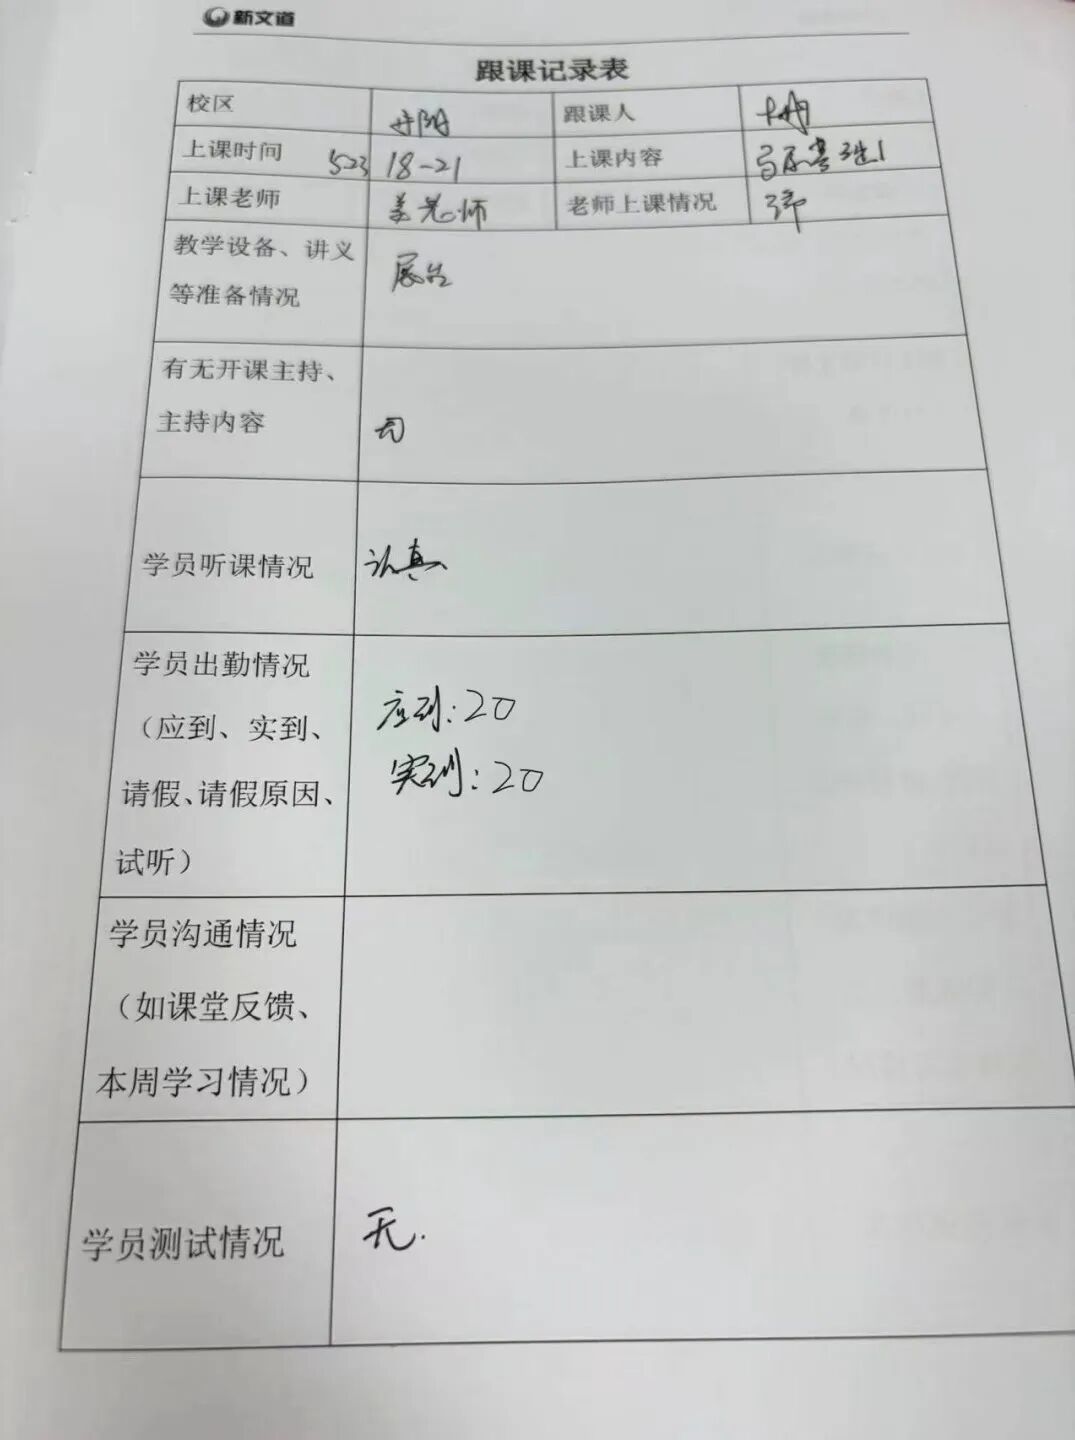 新文道
跟课记录表
校区 丹阳 跟课人
上课时间 523 18-21 上课内容
上课老师 姜老师 老师上课情况
教学设备、讲义
等准备情况
展台
有无开课主持、
主持内容
学员听课情况 认真
学员出勤情况
（应到、实到、
请假、请假原因、
试听）
应到：20
实到：20
学员沟通情况
（如课堂反馈、
本周学习情况）
学员测试情况 无.